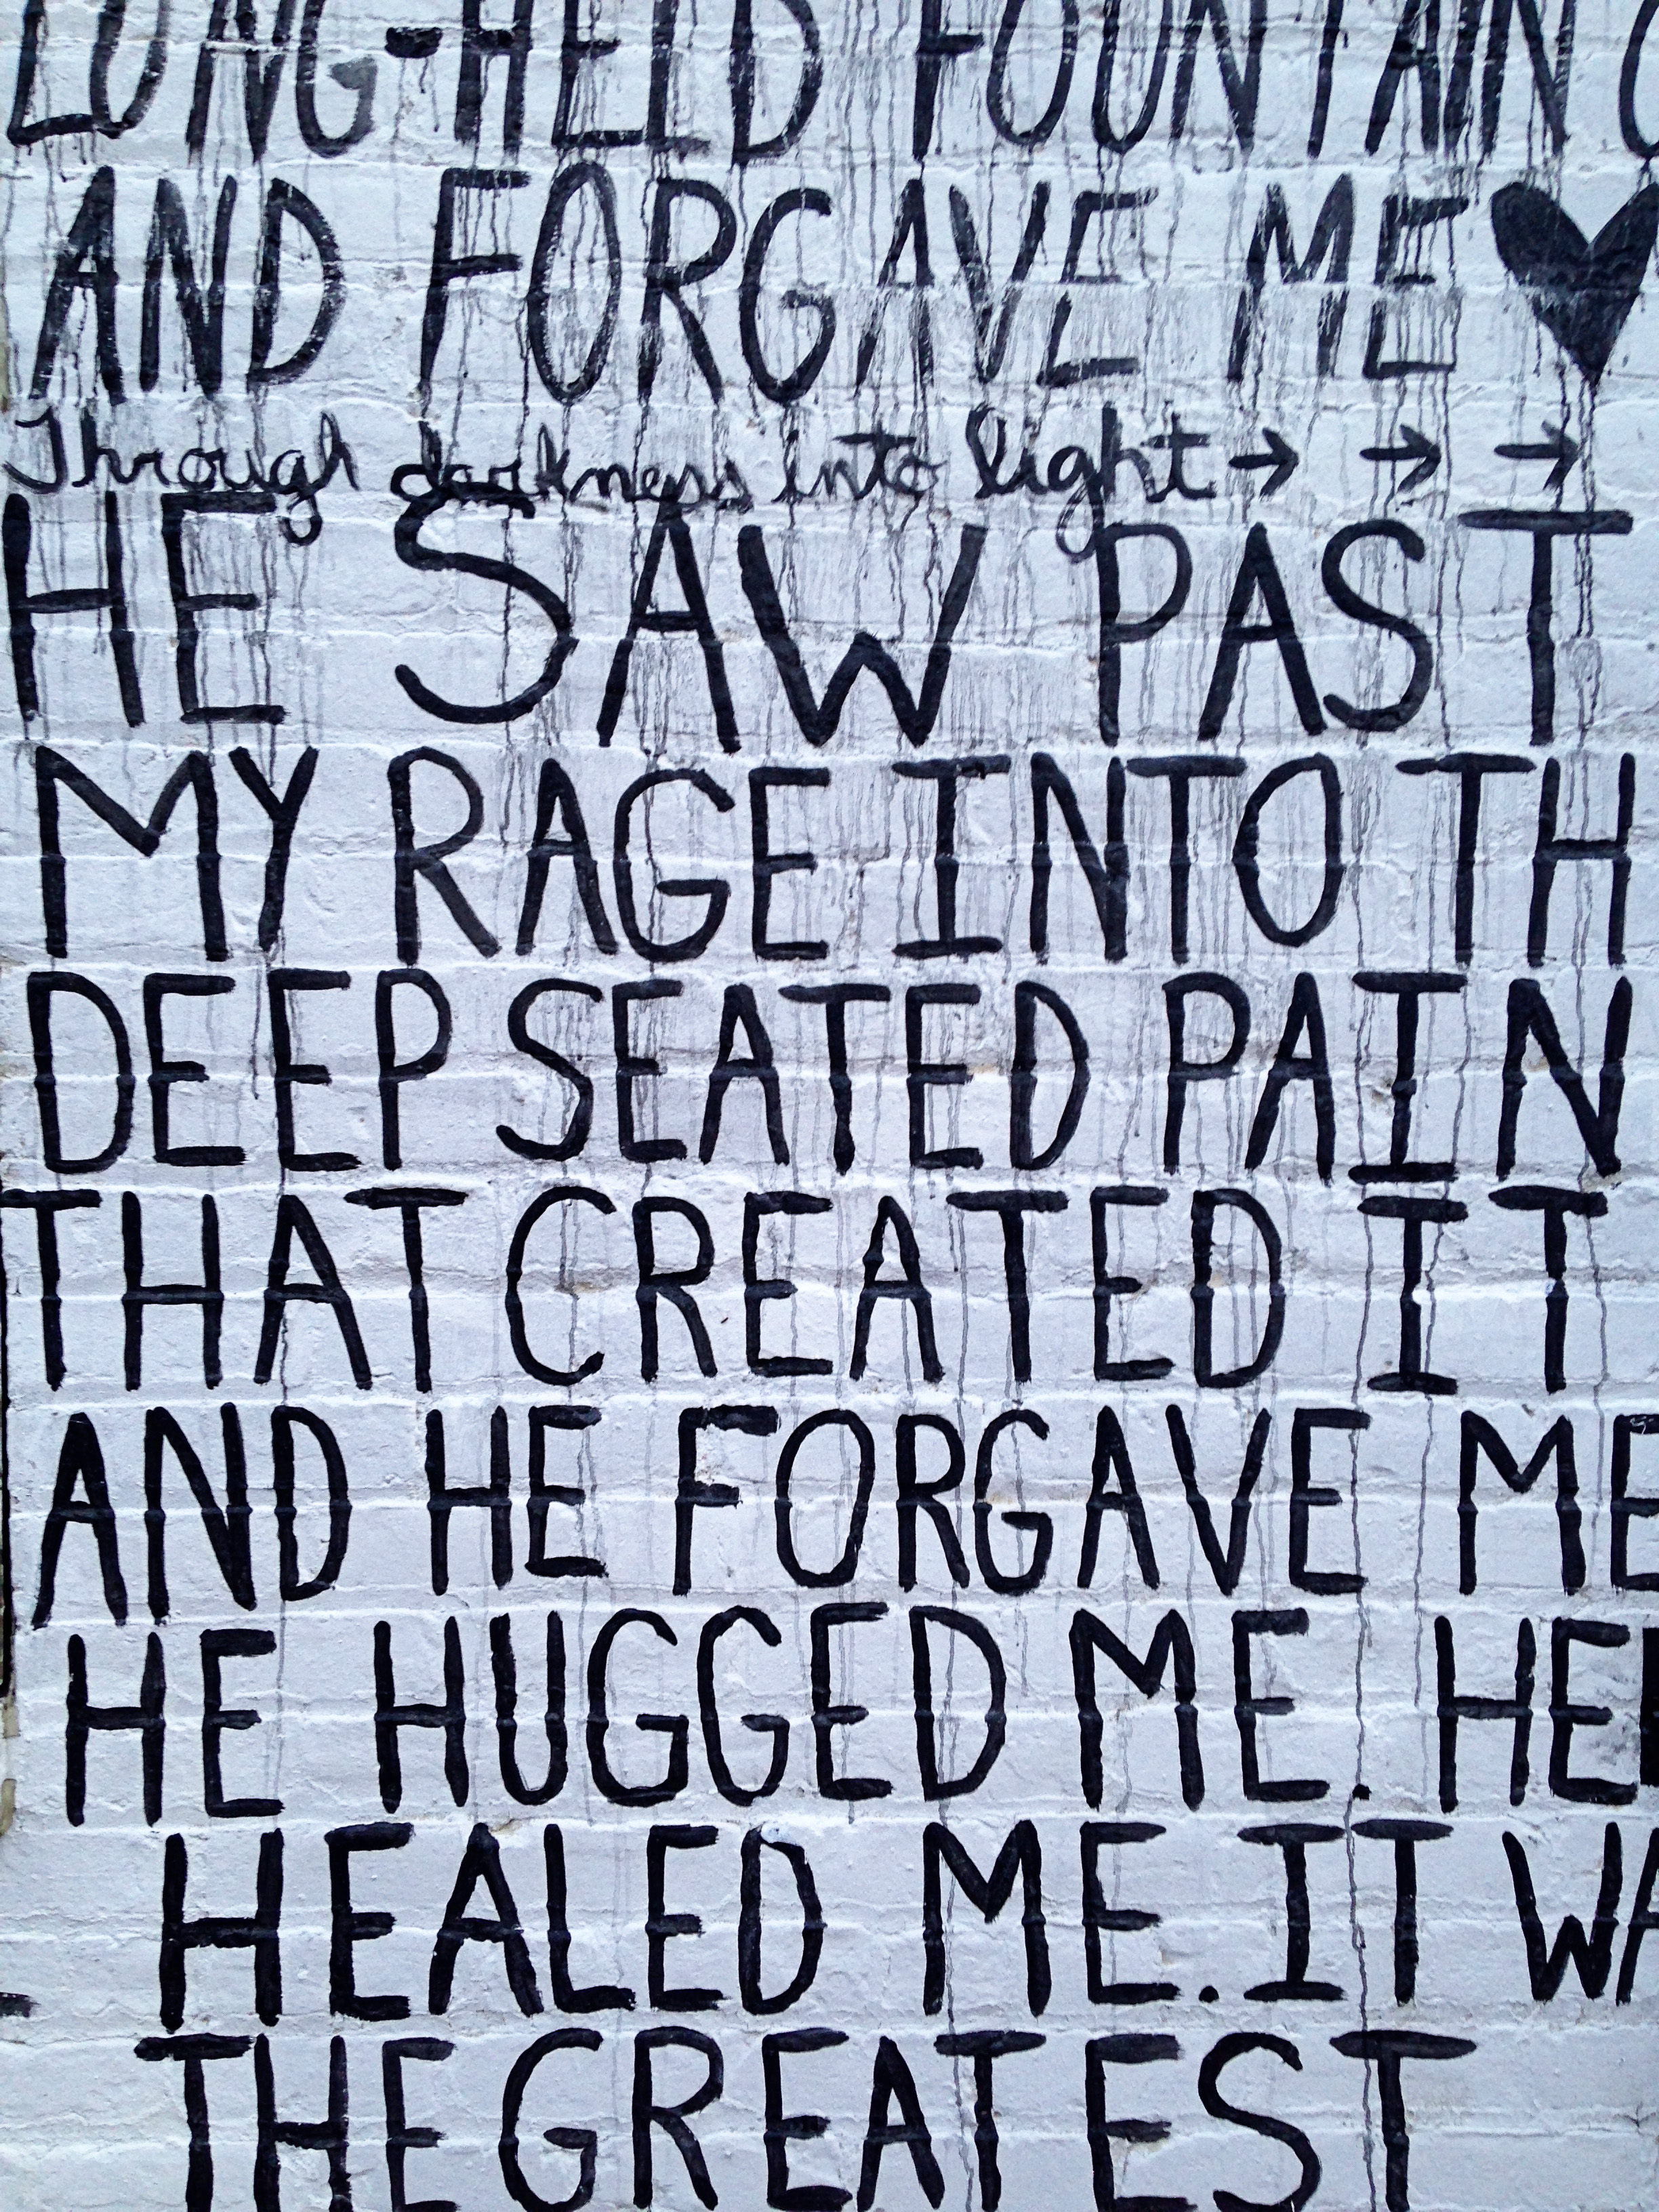 LONG-HELD FOUNTAIN
AND FORGAVE ME ♥
Through darkness into light → → →
HE SAW PAST
MY RAGE INTO TH
DEEP SEATED PAIN
THAT CREATED IT
AND HE FORGAVE ME
HE HUGGED ME. HE
HEALED ME. IT WA
THE GREATEST